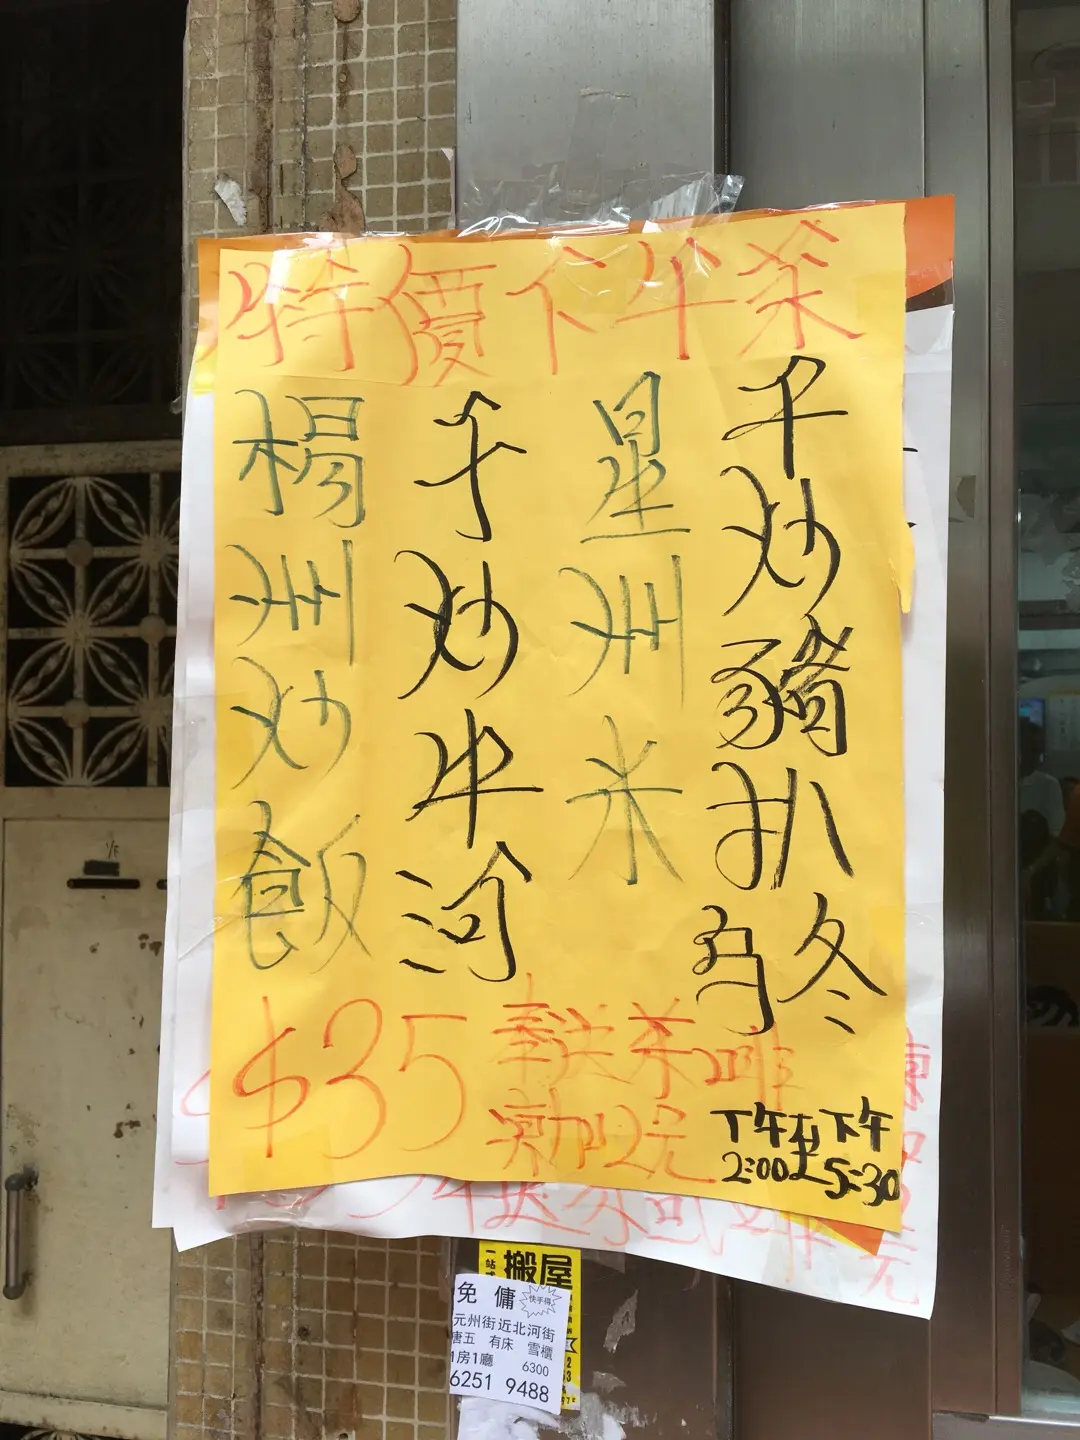 特價下午茶
干炒豬扒冬
星州米
干炒牛河
楊州炒飯
$35
奉送茶啡
凍加2元
下午至下午
2:00 5:30
搬屋
免傭
快手得
元州街近北河街
唐五 有床 雪櫃
1房1廳 6300
6251 9488